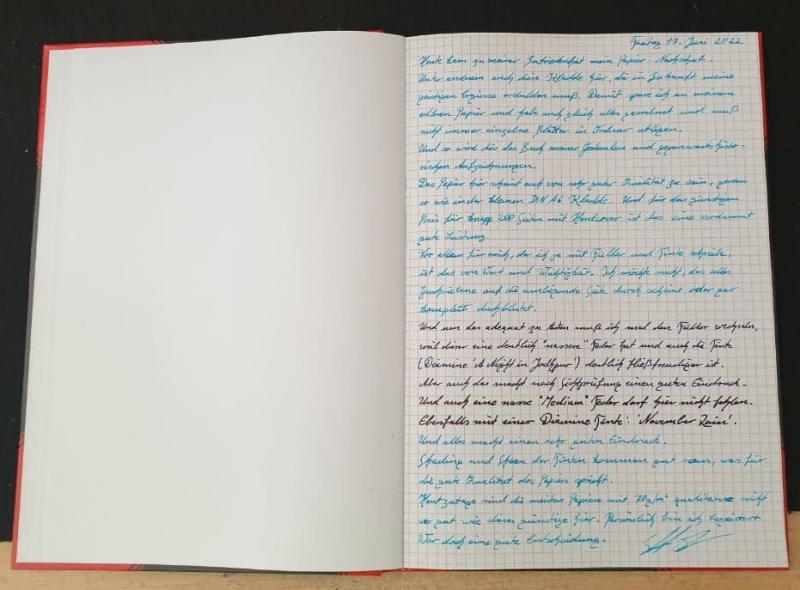 Freitag 17. Juni 2022
Heute kam zu meiner mein Papier - Nachschub.
Unter anderem auch diese Kladde hier, die in Zukunft meine
geistigen Ergüsse erdulden muß. Damit spare ich an meinem
Papier und hab auch gleich alles geordnet und muß
nicht immer einzelne Blätter in Ordner ablegen.
Und so wird dies das Buch meiner Gedanken und gegenwartshisto-
rischen Aufzeichnungen.
Das Papier hier scheint auch von sehr guter Qualität zu sein, genau
so wie in der kleinen DIN A6 Kladde. Und für das günstigen
Preis für knapp 200 Seiten mit Hardcover ist das eine verdammt
gute Leistung.
Vor allem für mich, der ich je mit Füller und Tinte schreibe,
ist das von Wert und Wichtigkeit. Ich möchte nicht, das alles
Geschriebene auf die umliegende Seite durch scheint oder gar
komplett durchblutet.
Und um das adequat zu testen muß ich mal den Füller wechseln,
weil dieser eine deutlich "nassere" Feder hat und auch die Tinte
(Diamine 'A Night in Jodhpur') deutlich fließfreudiger ist.
Aber auch das macht nach Sichtprüfung einen guten Eindruck.
Und auch eine nasse "Medium" Feder darf hier nicht fehlen.
Ebenfalls mit einer Diamine Tinte: 'November Rain'.
Und alles macht einen sehr guten Eindruck.
Shading und Sheen der Tinten kommen gut raus, was für
die gute Qualität des Papiers spricht.
Heutzutage sind die meisten Papiere mit 70g/m² qualitative nicht
so gut wie dieses günstige hier. Persönlich bin ich begeistert
War doch eine gute Entscheidung.